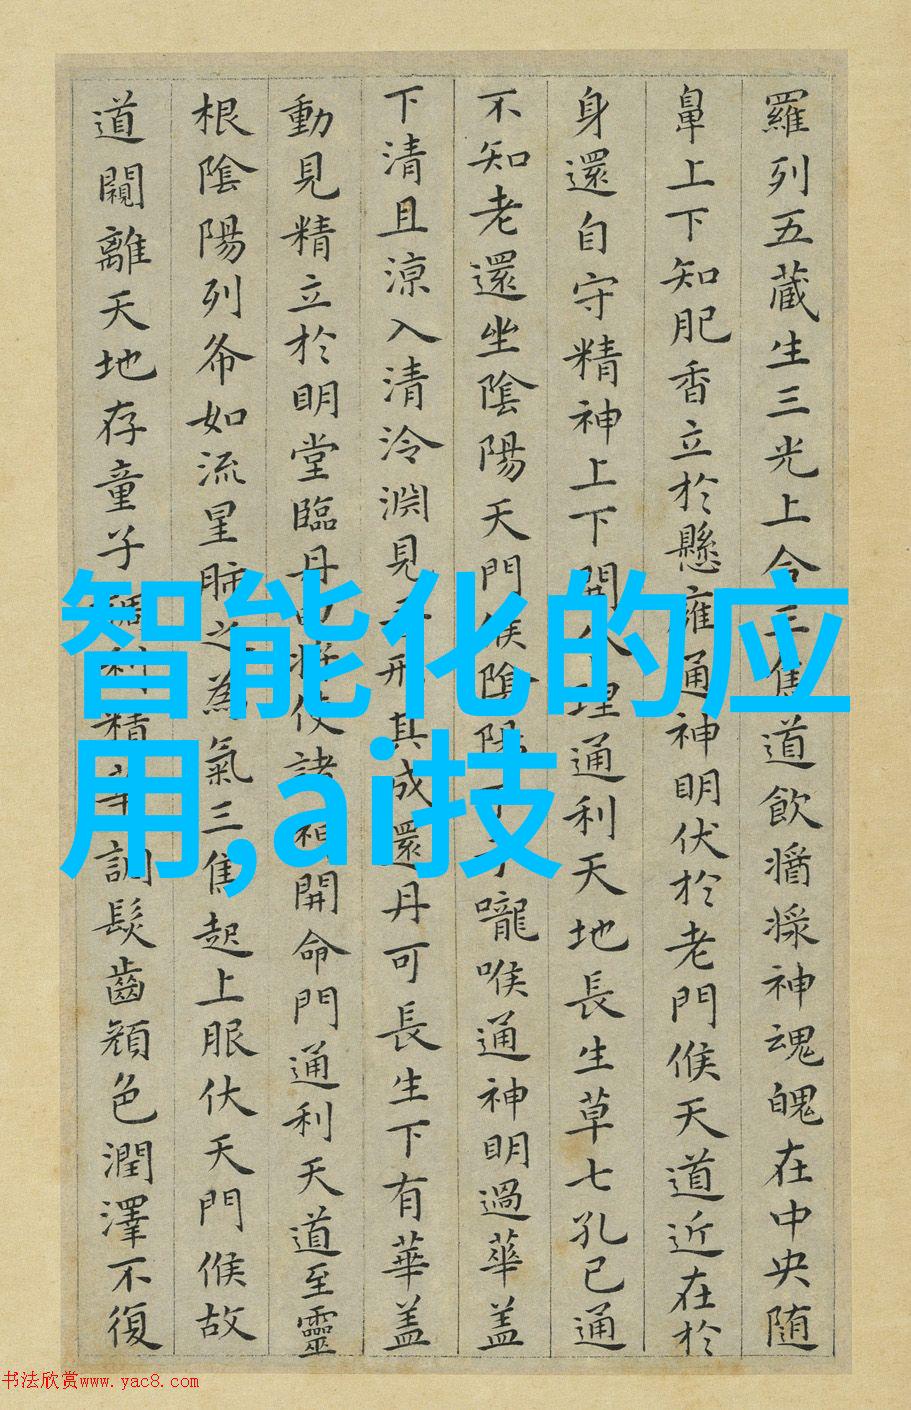 羅列五藏生三光上合三焦道飲醬漿神魂魄在中央隨
鼻上下知肥香立於懸雍通神明伏於老門候天道近在於
身還自守精神上下開人理通利天地長生草七孔已通
不知老還坐陰陽天門候陰陽下于嚨喉通神明過華盖
下清且涼入清泠淵見吾形其成還丹可長生下有華盖
動見精立於明堂臨丹田將使諸神開命門通利天道至靈
根陰陽列布如流星肺之為氣三焦起上服伏天門候故
道闚離天地存童子調利精華調髮齒顏色潤澤不復
智能化的应
用,ai技
书法欣赏www.yac8.com